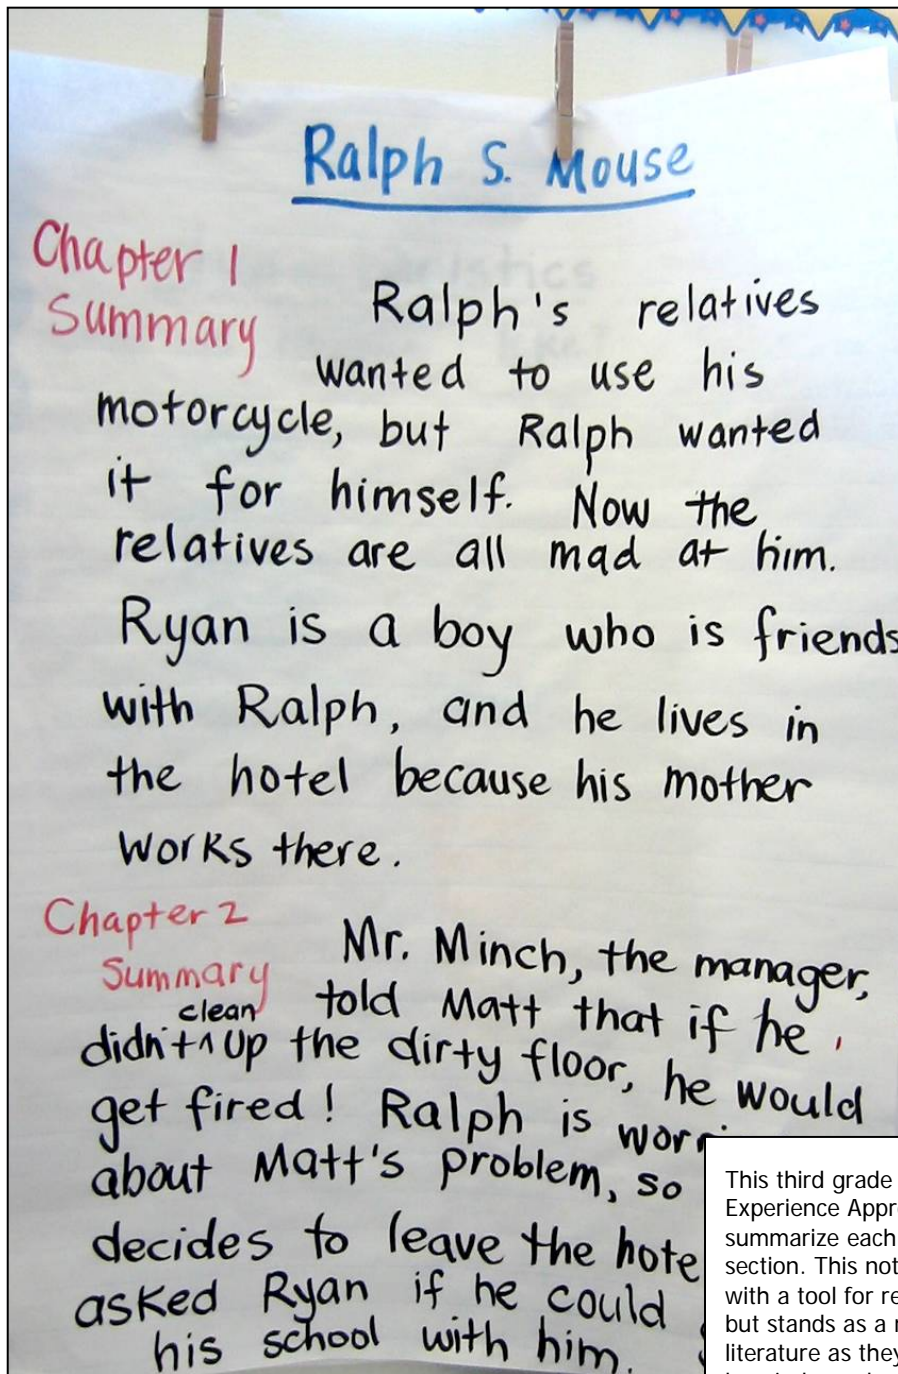 Ralph S. Mouse
Chapter 1
Summary
Ralph's relatives
wanted to use his
motorcycle, but Ralph wanted
it for himself. Now the
relatives are all mad at him.
Ryan is a boy who is friends
with Ralph, and he lives in
the hotel because his mother
works there.
Chapter 2
Summary
Mr. Minch, the manager,
told Matt that if he
clean
didn't ^ up the dirty floor, he would
get fired! Ralph is
about Matt's problem, so
decides to leave the
asked Ryan if he could
his school with him.
This third grade
Experience
summarize each
section. This
with a tool for
but stands as a
literature as they